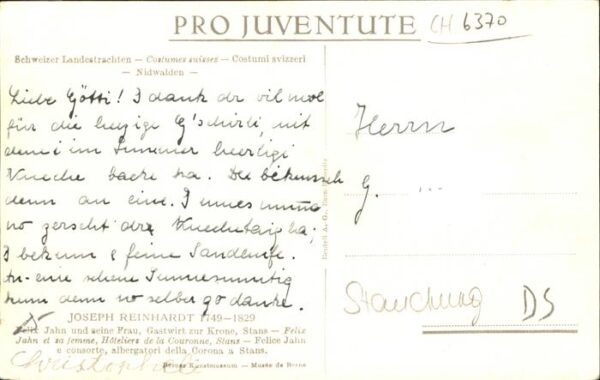 PRO JUVENTUTE
CH 6370
Schweizer Landestrachten — Costumes suisses — Costumi svizzeri
— Nidwalden —
Liebe Götti! I dank dr vil mol
für die herzige G'schirli, mit
dem i im Summer
Kueche bache ha. De bekunsch
denn an eine. I muess
no zerscht dr ha;
I bekum e feine Sandeife.
An eine schene Sunnesunntig
kum denn no selber go danke.
Herrn
G. ...
DS
JOSEPH REINHARDT 1749—1829
Felix Jahn und seine Frau, Gastwirt zur Krone, Stans — Felix
Jahn et sa femme, Hôteliers de la Couronne, Stans — Felice Jahn
e consorte, albergatori della Corona a Stans.
Berner Kunstmuseum — Musée de Berne